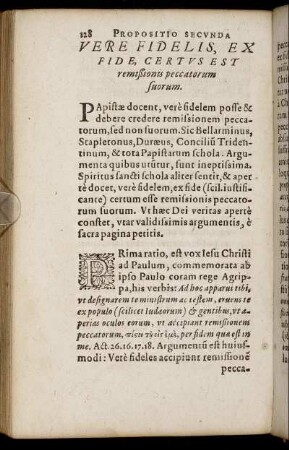 128 PROPOSITIO SECVNDA
VERE FIDELIS, EX
FIDE, CERTVS EST
remissionis peccatorum
suorum.
PApistæ docent, verè fidelem posse &
debere credere remissionem pecca-
torum, sed non suorum. Sic Bellarminus,
Stapletonus, Duræus, Conciliũ Triden-
tinum, & tota Papistarum schola. Argu-
menta quibus utũtur, sunt ineptissima.
Spiritus sancti schola aliter sentit, & aper
tè docet, verè fidelem, ex fide (scil. iustifi-
cante) certum esse remissionis peccato-
rum suorum. Vt hæc Dei veritas apertè
constet, vtar validissimis argumentis, è
sacra pagina petitis.
PRima ratio, est vox Iesu Christi
ad Paulum, commemorata ab
ipso Paulo coram rege Agrip-
pa, his verbis: Ad hoc apparui tibi,
vt designarem te ministrum ac testem, eruens te
ex populo (scilicet Iudæorum) & gentibus, vt a-
perias oculos eorum, vt accipiant remissionem
peccatorum, πίστει τῇ εἰς ἐμέ, per fidem quæ est in
me. Act. 26. 16. 17. 18. Argumentũ est huius-
modi: Verè fideles accipiunt remissionẽ
pecca-